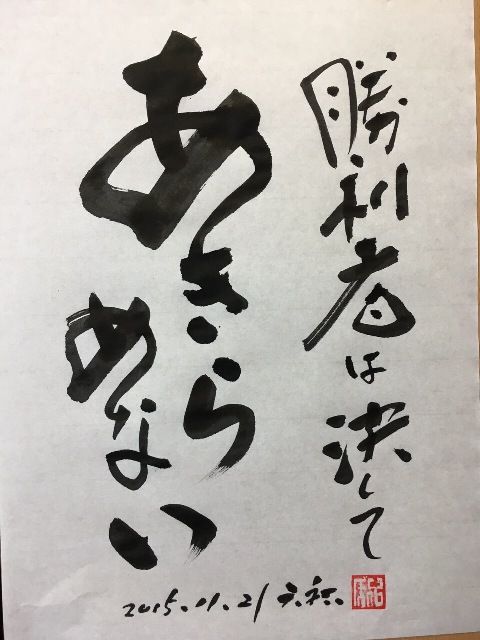 勝利者は決して
あきら
めない
2015.11.21